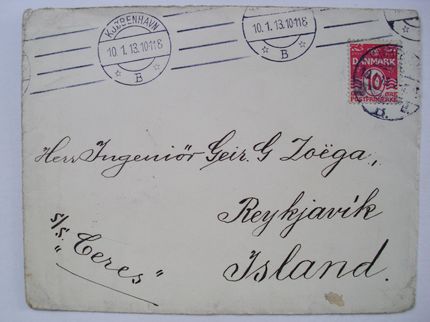 KJØBENHAVN
10.1.13.10-11E
B
10.1.13.10-11E
B
DANMARK
10
POSTFRIMÆRKE
B.
Herr Ingeniör Geir. G Zoëga,
Reykjavík
Island.
S/S. „Ceres"